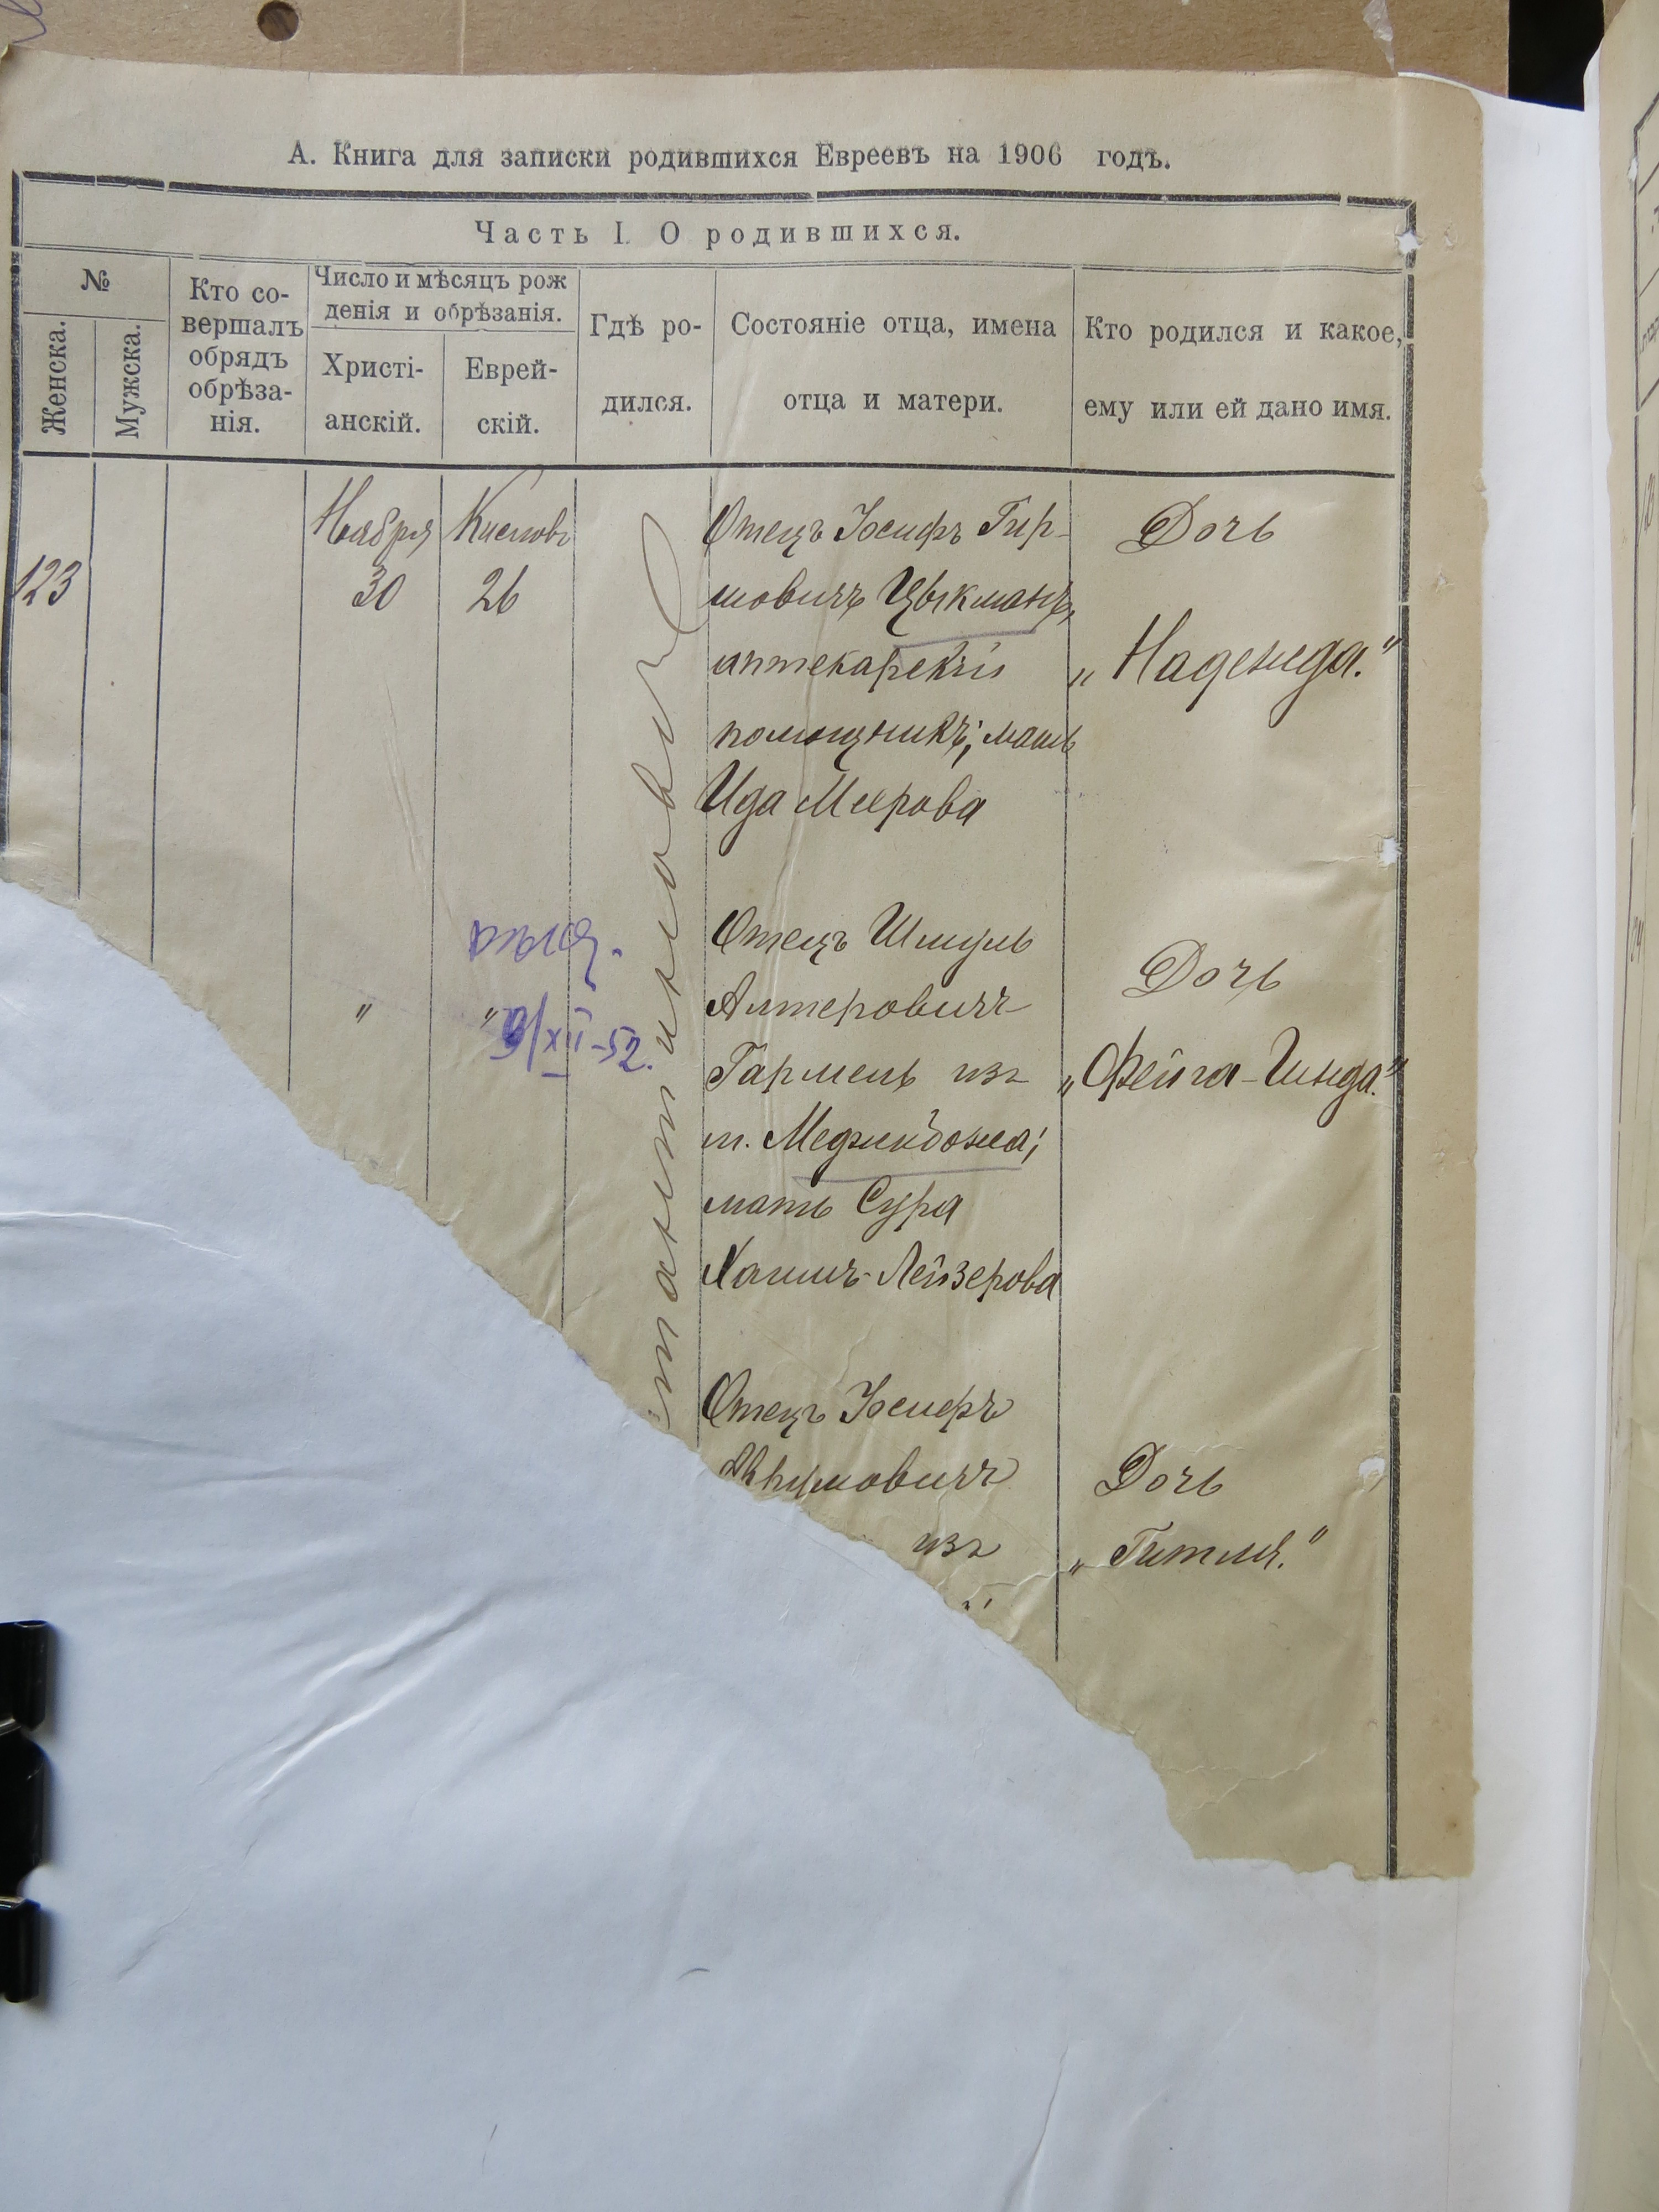 А. Книга для записки родившихся Евреевъ на 1906 годъ.
Часть I. О родившихся.
№
Женска.
Мужска.
Кто со-
вершалъ
обрядъ
обрѣза-
нія.
Число и мѣсяцъ рож
денія и обрѣзанія.
Христі-
анскій.
Еврей-
скій.
Гдѣ ро-
дился.
Состояніе отца, имена
отца и матери.
Кто родился и какое,
ему или ей дано имя.
123
Ноября
30
Кислова
26
Отецъ Іосифъ Гир-
шовичъ Цыкманъ,
аптекарскій
помощникъ; мать
Ида Меерова
Дочь
„Надежда."
"
"
9/XII-52.
Отецъ Шмуль
Алтеровичъ
Гармель изъ
м. Меджибожа;
мать Сура
Хаимъ-Лейзерова
Дочь
„Фейга-Гинда."
Отецъ Іосифъ
изъ
Дочь
„Гитля."